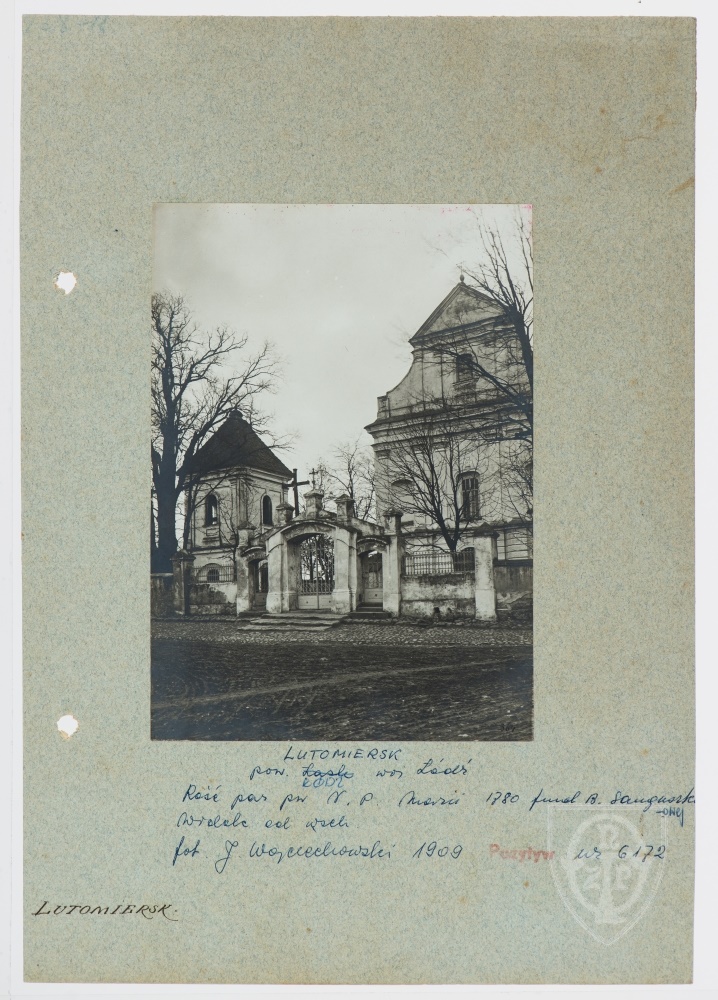 LUTOMIERSK
pow. Łask woj Łódź
ŁÓDŹ
Kość par pw N. P. Marii 1780 fund B. Sanguszk
-onej
Widok od wsch
fot J Wojciechowski 1909 Pozytyw nr 6172
LUTOMIERSK.